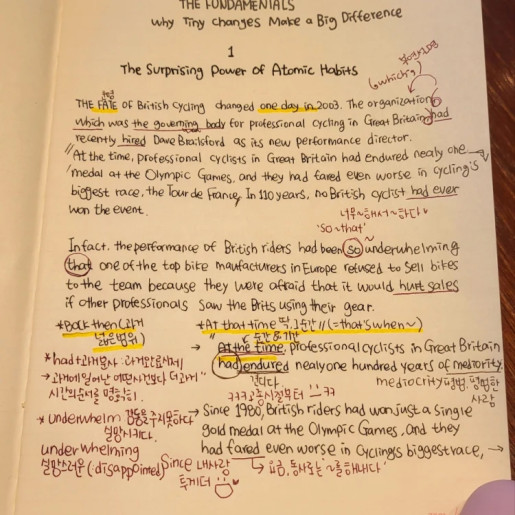 THE FUNDAMENTALS
Why Tiny changes Make a Big Difference
1
The Surprising Power of Atomic Habits
(which,)
THE FATE of British Cycling changed one day in 2003. The organization,
which was the governing body for professional cycling in Great Britain, had
recently hired Dave Brailsford as its new performance director.
"At the time, professional cyclists in Great Britain had endured nealy one
medal at the Olympic Games, and they had fared even worse in cycling's
biggest race, the Tour de France, In 110 years, no British cyclist had ever
won the event.
너무~해서~하다
'so~that'
Infact. the performance of British riders had been so underwhelming
that one of the top bike maufacturers in Europe refused to sell bikes
to the team because they were afraid that it would hurt sales
if other professionals saw the Brits using their gear.
*Back then (과거
넓은범위)
*At that time 딱, 그순간 // (=that's when~)
순간&기간
"At the time, professional cyclists in Great Britain
had endured nealy one hundred years of mediocrity.
견디다.
mediocrity 평범, 평범한
사람
*had+과거분사: 과거완료시제
→ 과거에 일어난 어떤사건보다 더 과거
시간적순서를 명확히.
*underwhelm 감동을주지못하다
실망시키다.
underwhelming
실망스러운 (:disappointed)
→ Since 1980, British riders had won just a single
gold medal at the Olympic Games, and they
had fared even worse in Cycling's biggest race, →
Since 내사랑
투게더